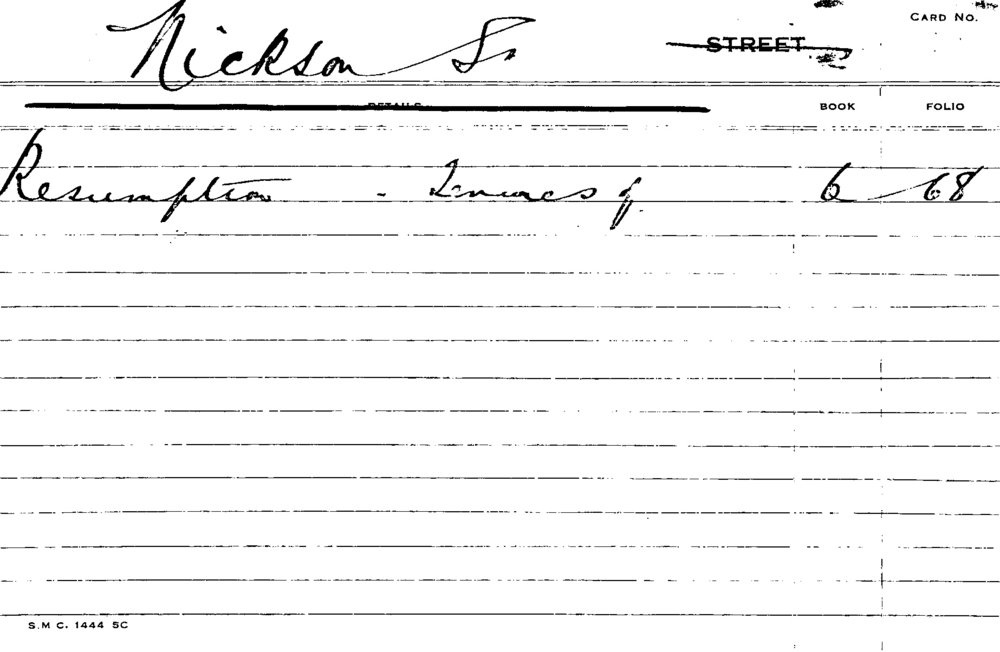 Nickson St STREET CARD NO.
DETAILS BOOK FOLIO
Resumption - Tenures of 6 68
S.M C. 1444 5C